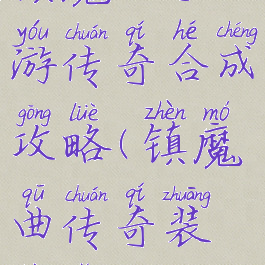 yóu chuán qí hé chéng
游传奇合成
gōng lüè zhèn mó
攻略(镇魔
qū chuán qí zhuāng
曲传奇装